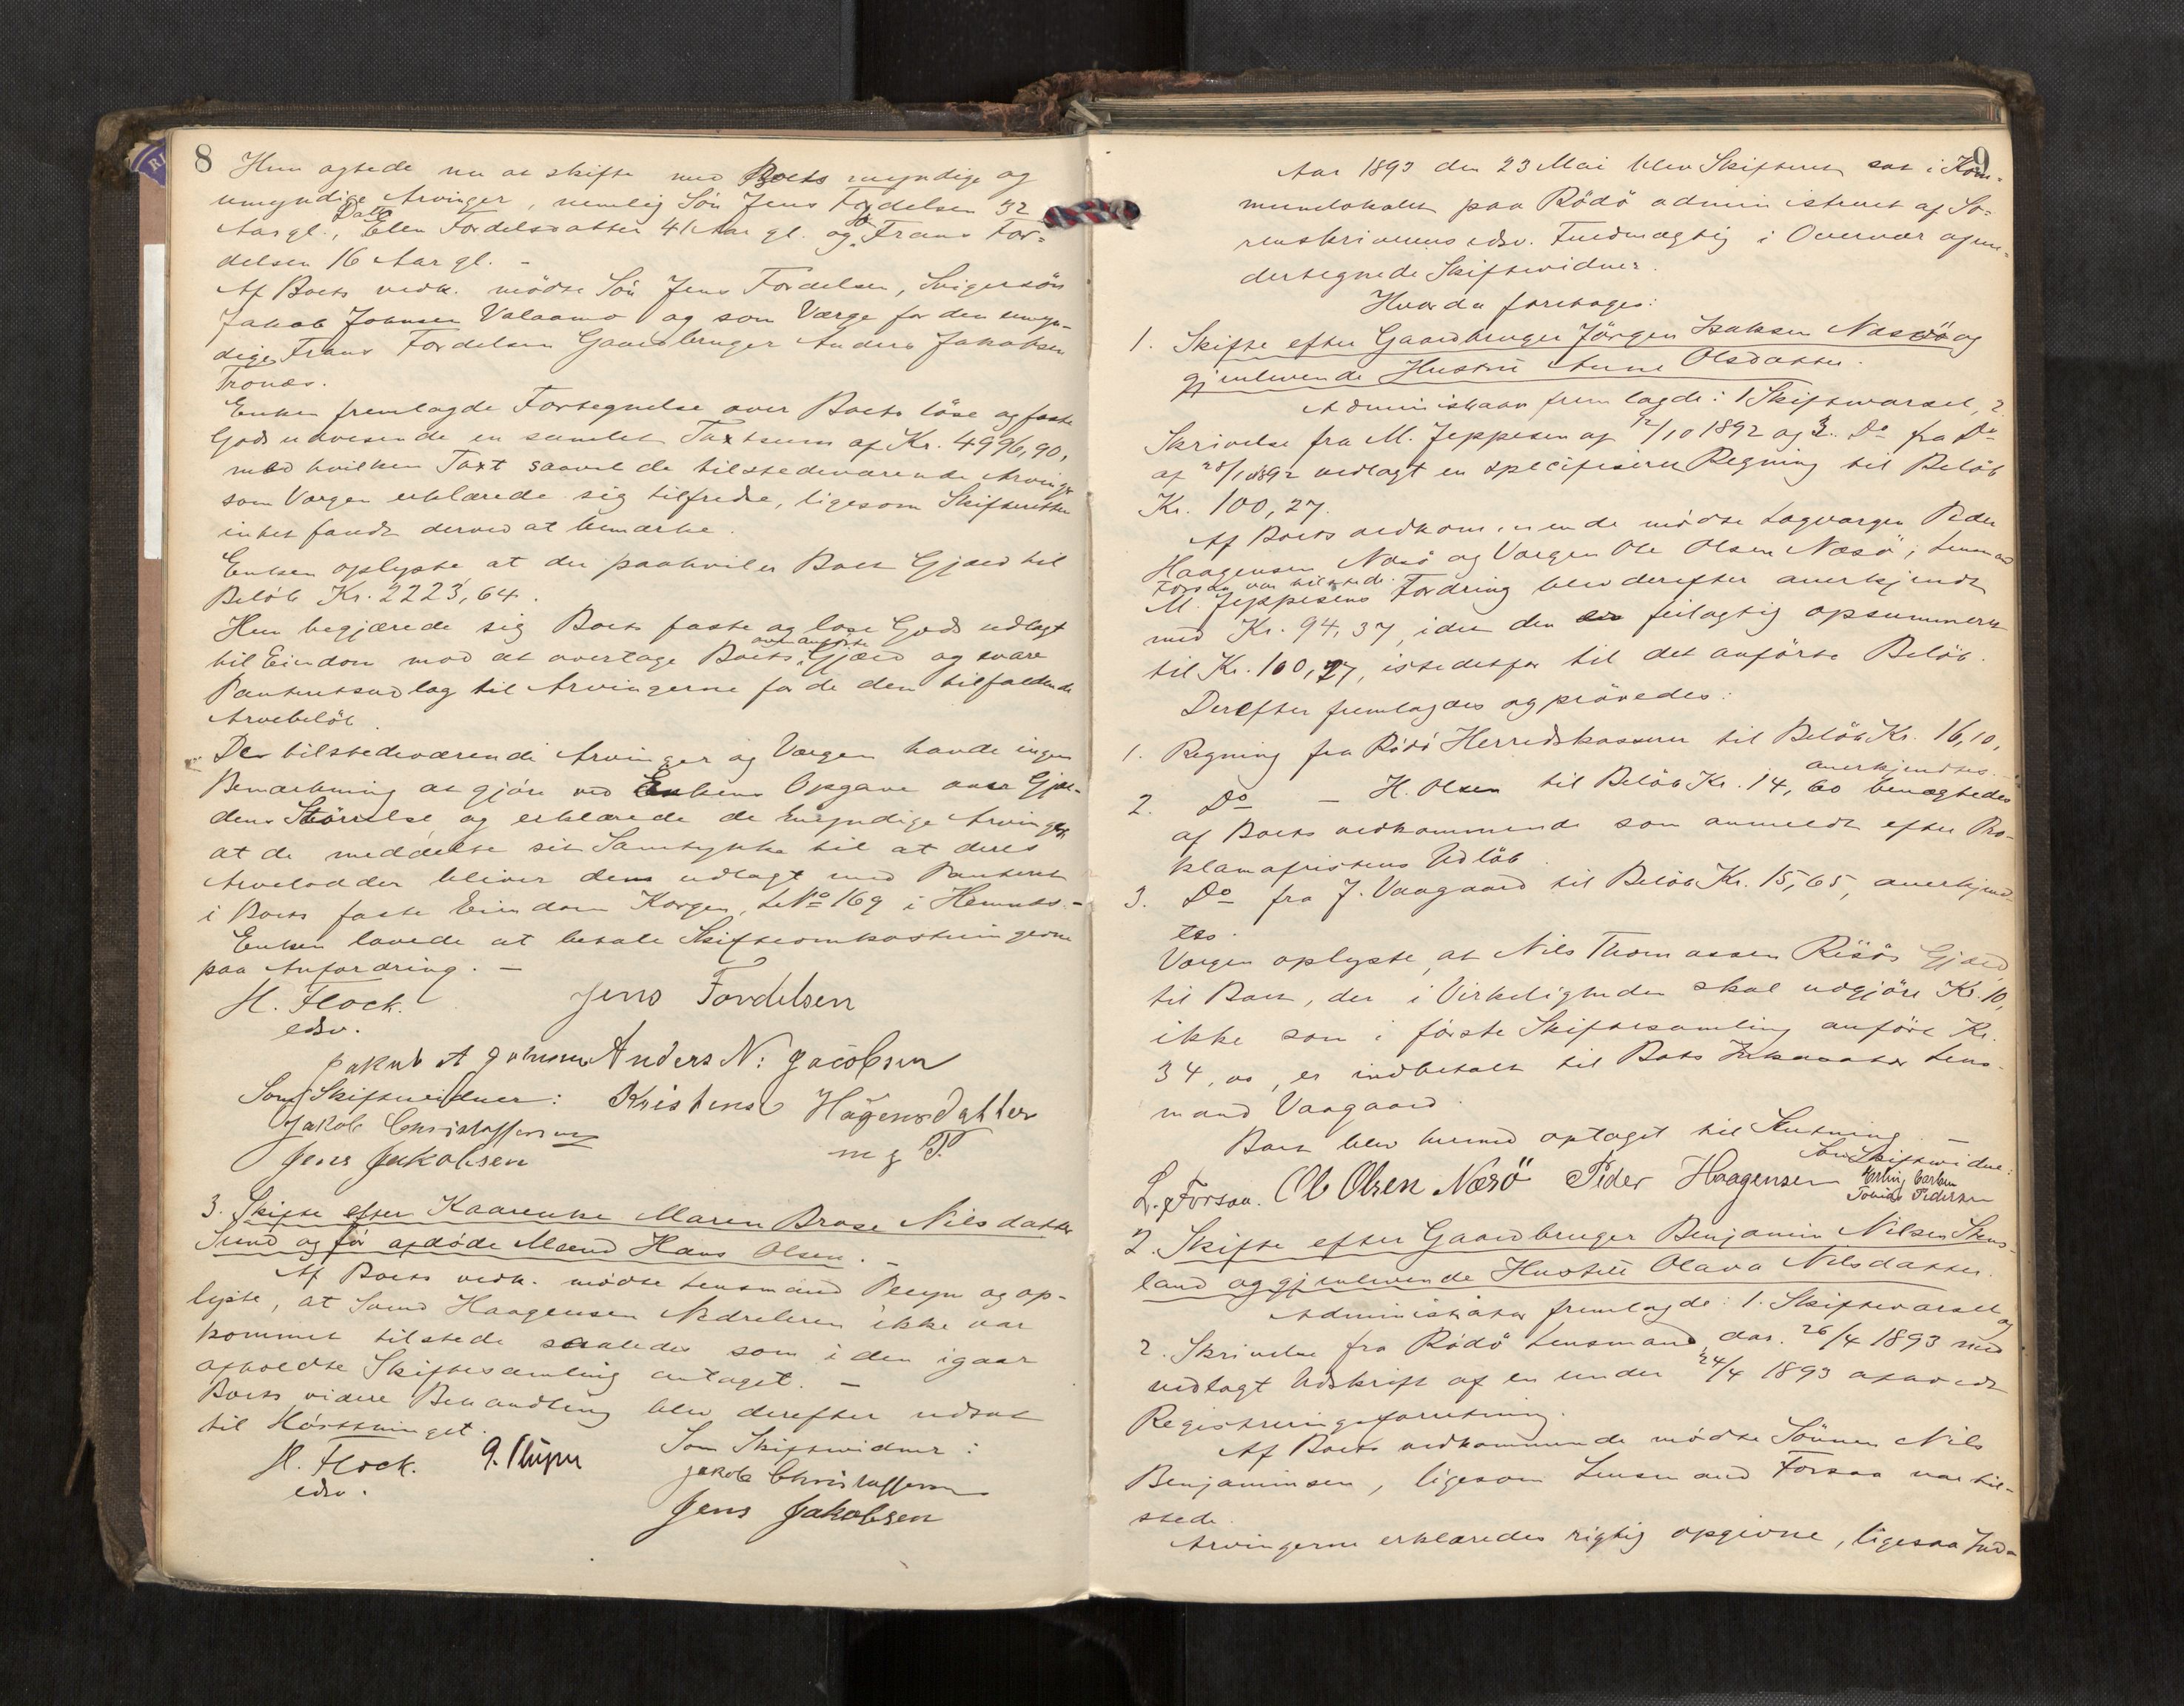 8
Hun agtede nu at skifte med Boets myndige og
umyndige Arvinger, nemlig Søn Jens Fordelsen 32
Aar gl., Datt. Ellen Fordelsdatter 41 Aar gl. og Søn Frans For-
delsen 16 Aar gl. -
Af Boets vedk. mødte Søn Jens Fordelsen, Svigersøn
Jakob Johnsen Valaamo og som Værge for den umyn-
dige Frans Fordelsen Gaardbruger Anders Jakobsen
Tronæs.
Enken fremlagde Fortegnelse over Boets løse og faste
Gods udvisende en samlet Taxtsum af Kr. 4996,90,
med hvilken Taxt saavel de tilstedeværende Arvinger
som Værgen erklærede sig tilfredse, ligesom Skifteretten
intet fandt derved at bemærke.
Enken oplyste at der paahviler Boet Gjæld til
Beløb Kr. 2223,64.
Hun begjærede sig Boets faste og løse Gods udlagt
til Eiendom mod at overtage Boets ovenanførte Gjæld og svare
Panteretsudlag til Arvingerne for de dem tilfaldende
Arvebeløb.
De tilstedeværende Arvinger og Værgen havde ingen
Bemærkning at gjøre ved Enkens Opgave over Gjæl-
dens Størrelse og erklærede de myndige Arvinger,
at de meddelte sit Samtykke til at deres
Arvelodder bliver dem udlagt med Panteret
i Boets faste Eiendom Korgen, L№ 169 i Hemnæs. -
Enken lovede at betale Skifteomkostningerne
paa Anfordring. -
H. Flock. Jens Fordelsen
edsv.
Jakob A Johnsen Anders N: Jacobsen
Som Skiftevidner: Kristense Hågensdatter
Jakob Christoffersen m g P.
Jens Jakobsen
3. Skifte efter Kaarenke Maren Brose Nilsdatter
Sund og før afdøde Mand Hans Olsen. -
Af Boets vedk. mødte Lensmand og op-
lyste, at Svend Haagensen Nedreleren ikke var
kommet tilstede saaledes som i den igaar
afholdte Skiftesamling antaget. -
Boets videre Behandling blev derefter udsat
til Høstthinget.
H. Flock. Som Skiftevidner:
edsv. Jakob Christoffersen
Jens Jakobsen
9
Aar 1893 den 23 Mai blev Skifteret sat i Kom-
munelokalet paa Rödö administreret af So-
renskriverens edsv. Fuldmægtig i Overvær af un-
dertegnede Skiftevidner.
Hvorda foretoges:
1. Skifte efter Gaardbruger Jörgen Isaksen Næsö og
gjenlevende Hustru Anne Olsdatter.
Administrator fremlagde: 1 Skiftevarsel, 2.
Skrivelse fra M. Jeppesen af 12/10 1892 og 3. Do fra Do
af 28/10 1892 vedlagt en specifiseret Regning til Beløb
Kr. 100,27.
Af Boets vedkommende mødte Lagværgen Peder
Haagensen Næsö og Værgen Ole Olsen Næsö; Lensmand
Forsaa var tilstede.
M. Jeppesens Fordring blev derefter anerkjendt
med Kr. 94,37, idet den er feilagtig opsummeret
til Kr. 100,27, istedetfor til det anförte Belöb.
Derefter fremlagdes og prövedes:
1. Regning fra Rödö Herredskasserer til Belöb Kr. 16,10,
anerkjendtes. -
2. Do - H. Olsen til Belöb Kr. 14,60 benægtedes
af Boets vedkommende som anmeldt efter Pro-
klamafristens Udlöb.
3. Do fra J. Vaagaard til Belöb Kr. 15,65, anerkjend-
tes.
Værgen oplyste, at Nils Thomassen Risös Gjæld
til Boet, der i Virkeligheden skal udgjöre Kr. 10,
ikke som i förste Skiftesamling anfört Kr.
34,00, er indbetalt til Boets Inkassator Lens-
mand Vaagaard.
Boet blev hermed optaget til Slutning. -
Som Skiftevidne:
L. Forsaa. Ole Olsen Næsö Peder Haagensen Carlsen
Tobias Pedersen
2. Skifte efter Gaardbruger Benjamin Nilsen Stens-
land og gjenlevende Hustru Olava Nilsdatter.
Administrator fremlagde: 1. Skiftevarsel og
2. Skrivelse fra Rödö Lensmand dat. 26/4 1893 med
vedlagt Udskrift af en under 24/4 1893 afholdt
Registreringsforretning.
Af Boets vedkommende mødte Sönnen Nils
Benjaminsen, ligesom Lensmand Forsaa var til-
stede.
Arvingerne erklæredes rigtig opgivne, ligesaa Ind-